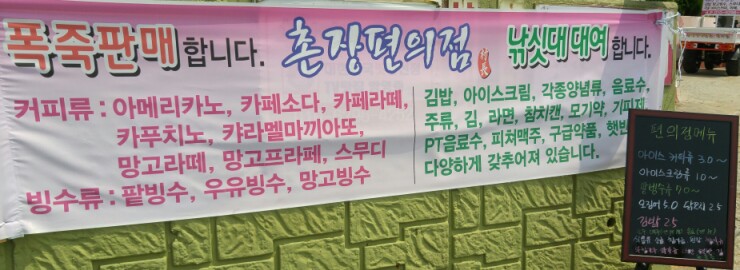 폭죽판매 합니다. 촌장편의점 낚싯대 대여 합니다.
커피류 : 아메리카노, 카페소다, 카페라떼,
카푸치노, 캬라멜마끼아또,
망고라떼, 망고프라페, 스무디
빙수류 : 팥빙수, 우유빙수, 망고빙수
김밥, 아이스크림, 각종양념류, 음료수,
주류, 김, 라면, 참치캔, 모기약, 기피제,
PT음료수, 피쳐맥주, 구급약품, 햇반
다양하게 갖추어져 있습니다.
편의점메뉴
아이스 커피류 3.0~
아이스크림류 1.0~
팥빙수류 7.0~
오징어 5.0 2.5
김밥 2.5